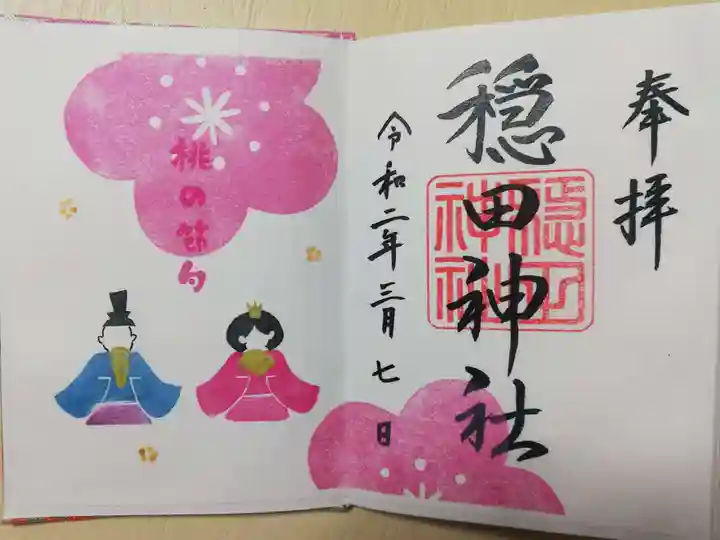 奉拝
穏田神社
令和二年三月七日
桃の節句